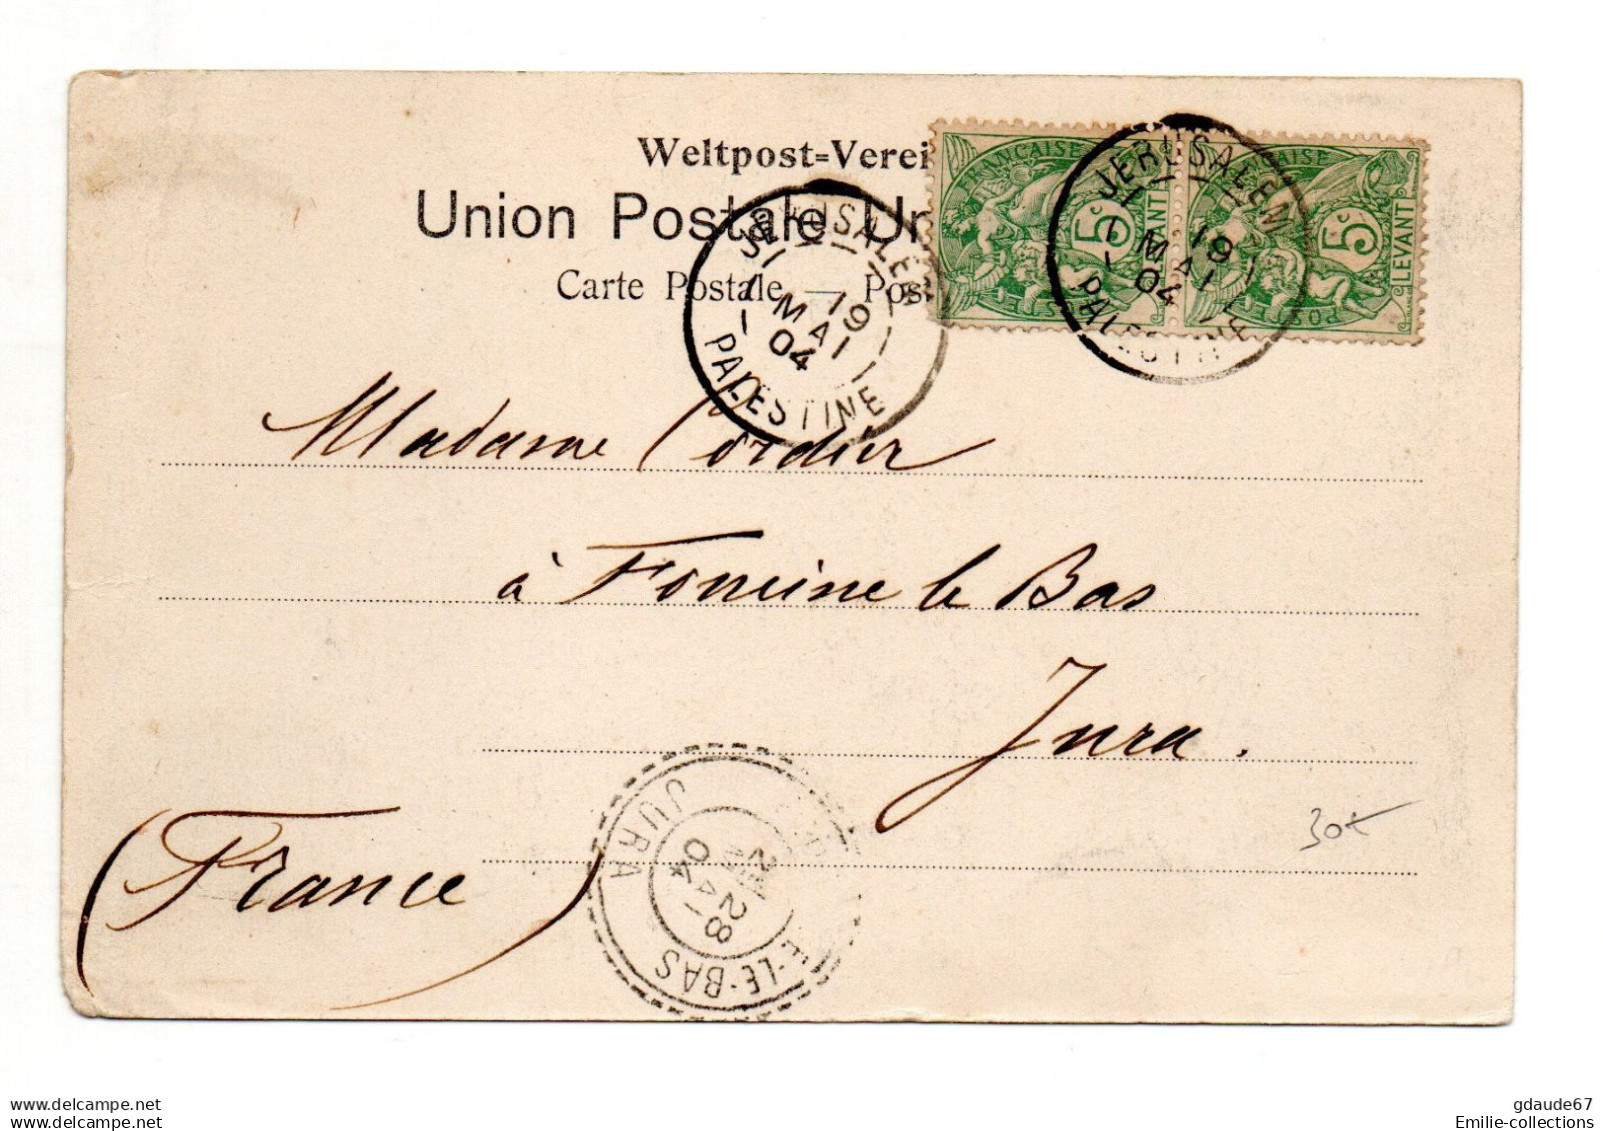 Weltpost=Verei
Union Postale Un
Carte Postale — Pos
FRANÇAISE
5c
LEVANT
POSTES
JERUSALEM
19
MAI
04
PALESTINE
JERUSALEM
19
MAI
04
PALESTINE
Madame Cordier
à Foncine le Bas
Jura.
(France)
E-LE-BAS
JURA
28
MAI
04
30€
www.delcampe.net
www.delcampe.net
gdaude67
Emilie-collections